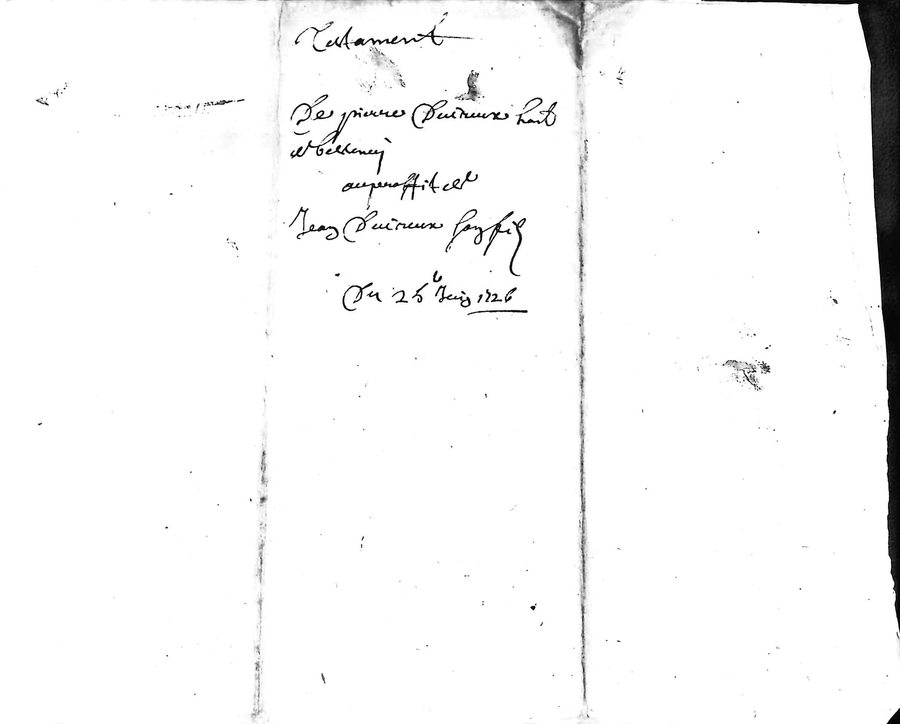 Testament
De pierre Duireux hart
de
au proffit de
Jean Duireux son fils
Du 25e Juin 1726